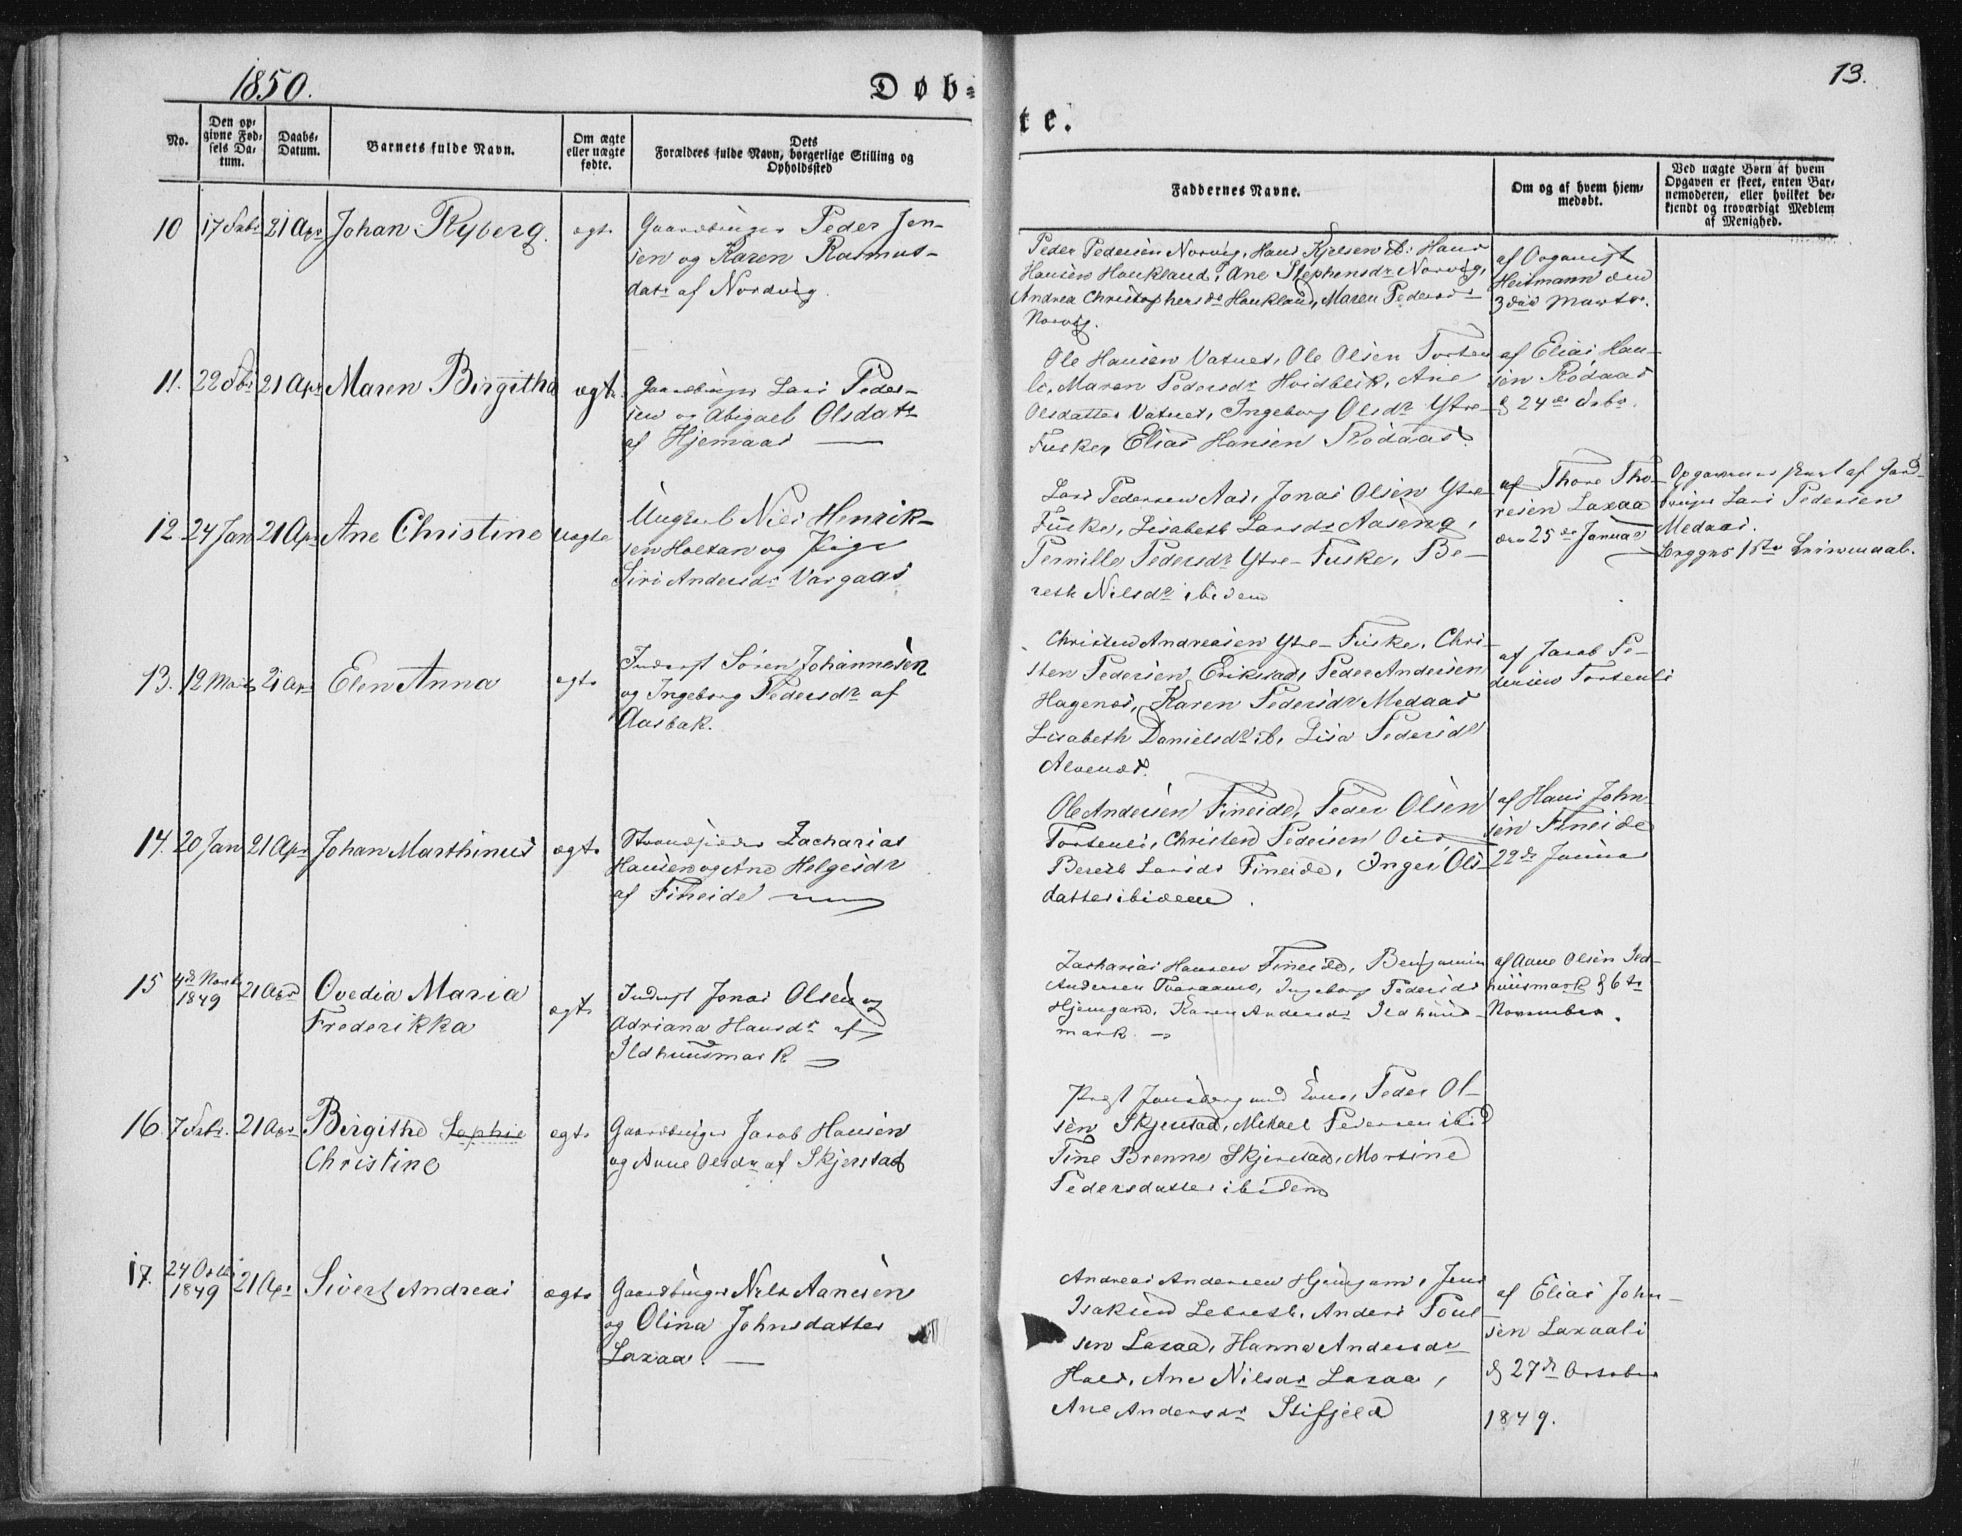 1850.
Døb=
te.
13.
No.
Den op=
givne Fød=
sels Da=
tum.
Daabs=
Datum.
Barnets fulde Navn.
Om ægte
eller uægte
fødte.
Dets
Forældres fulde Navn, borgerlige Stilling og
Opholdssted
Faddernes Navne.
Om og af hvem hjem=
medøbt.
Ved uægte Børn af hvem
Opgaven er skeet, enten Bar=
nemoderen, eller hvilket be=
kjendt og troværdigt Medlem
af Menighed.
10 17 Febr 21 Apr Johan Ryberg. egte
Gaardbruger Peder Jen-
sen og Karen Rasmus-
datr af Nordvig.
Peder Pedersen Norvig, Hans Kjelsen ib. Hans
Hansen Haukland, Ane Stephensdr Norvig,
Andrea Christophersdr Haukland, Maren Pedersdr
Norvig.
af Organist
Heitmann den
3die Marts.
11. 22 Febr 21 Apr Maren Birgitha ægte
Gaardbruger Lars Peder-
sen og Abigael Olsdatr
af Hjemaas
Ole Hansen Vatnet, Ole Olsen Torten
li, Maren Pedersdr Hvidblik, Ane
Olsdatter Vatnet, Ingeborg Olsdr Ytre-
Fuske, Elias Hansen Rødaas.
af Elias Han-
sen Rødaas
d 24de Febr.
12 24 Jan 21 Apr Ane Christine uægte
Ungkarl Niels Henrik-
sen Holtan og Pige
Siri Andersdr Vargaas
Lars Pedersen Aas, Jonas Olsen Ytre
Fuske, Lisabeth Larsdr Aaseng,
Pernille Pedersdr Ytre-Fuske, Be-
reth Nilsdr ibidem
af Thore Tho-
resen Laxaa
den 25de Januar
Opgavernes skeet af Gard
bruger Lars Pedersen
Medaas.
Begges 1ste Leiermaal.
13. 12 Marts 21 Apr Elen Anna egte
Inderst Søren Johannesen
og Ingeborg Pedersdr af
Aasbak.
Christen Andreasen Ytre-Fuske, Chri-
sten Pedersen Erikstad, Peder Andersen
Hagenes, Karen Pedersdr Medaas
Lisabeth Danielsdr ib, Lisa Pedersdr
Alvenes.
af Jacob Pe-
dersen Tortenli
14. 20 Jan 21 Apr Johan Marthinus ægte
Strandsidder Zacharias
Hansen og Ane Helgesdr
af Fineide
Ole Andersen Fineide, Peder Olsen
Tortenli, Christen Pedersen
Bereth Larsdr Fineide, Inger Ols-
datter ibidem.
af Hans John-
sen Fineide
22de Januar
15 4de Novbr
1849 21 Apr Ovedia Maria
Frederikka ægte
Inderst Jonas Olsen og
Adriana Hansdr af
Ildhuusmark
Zacharias Hansen Fineide, Benjamin
Andersen Tveraamo, Ingeborg Pedersdr
Hjemgam, Karen Andersdr Ildhuus-
mark.
af Aane Olsen Ild-
huusmark d 6te
November.
16. 7 Febr. 21 Apr Birgithe Sophie
Christine egte
Gaardbruger Jacob Hansen
og Anne Olsdr af Skjerstad
Peder Ol-
sen Skjerstad, Mikael Pedersen ibid
Tine Brenne Skjerstad, Martine
Pedersdatter ibidem
17. 24 Octbr
1849 21 Apr Sivert Andreas ægte
Gaardbruger Nils Aanesen
og Olina Johnsdatter
Laxaa.
Andreas Andersen Hjemgam, Jens
Isaksen Lebreth, Anders Poul
sen Laxaa, Hanna Andersdr
Hals, Ane Nilsdr Laxaa,
Ane Andersdr Stifjeld
af Elias John-
sen Laxaali
d 27de October
1849.